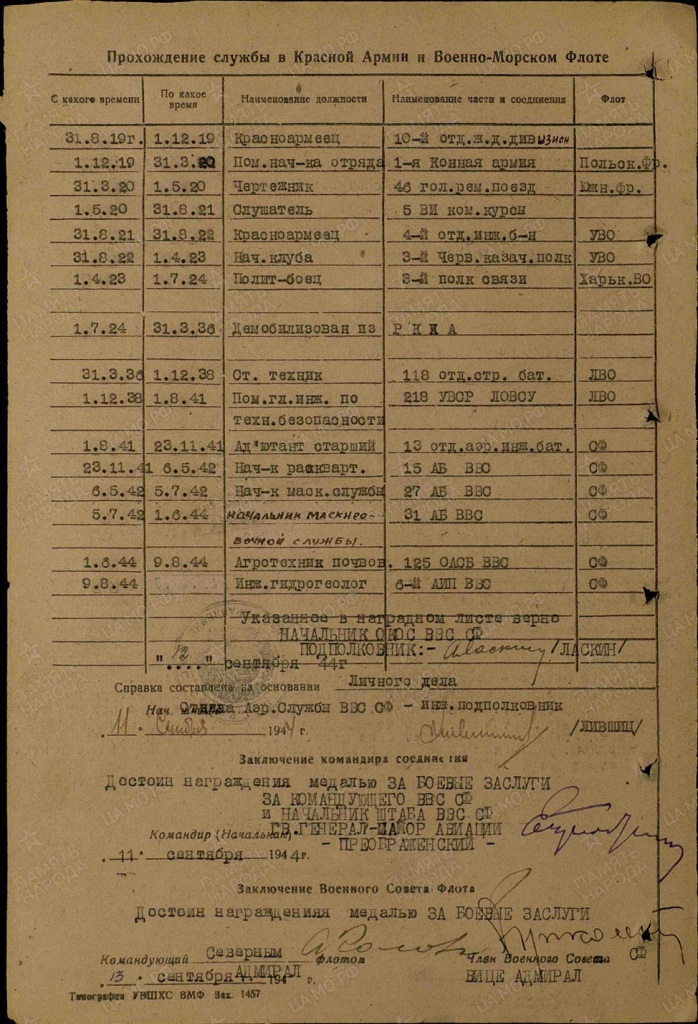 Прохождение службы в Красной Армии и Военно-Морском Флоте
С какого времени По какое время Наименование должности Наименование части и соединения Флот
31.8.19г. 1.12.19 Красноармеец 10-й отд.ж.д.дивизион
1.12.19 31.3.20 Пом.нач-ка отряда 1-я Конная армия Польск.фр.
31.3.20 1.5.20 Чертежник 46 гол.рем.поезд Южн.фр.
1.5.20 31.8.21 Слушатель 5 ВИ ком.курсы
31.8.21 31.8.22 Красноармеец 4-й отд.инж.б-н УВО
31.8.22 1.4.23 Нач.клуба 3-й Черв.казач.полк УВО
1.4.23 1.7.24 Полит-боец 3-й полк связи Харьк.ВО
1.7.24 31.3.36 Демобилизован из Р К К А
31.3.36 1.12.38 Ст. техник 118 отд.стр. бат. ЛВО
1.12.38 1.8.41 Пом.гл.инж. по 218 УВСР ЛОВСУ ЛВО
техн.безопасности
1.8.41 23.11.41 Ад'ютант старший 13 отд.аэр.инж.бат. СФ
23.11.41 6.5.42 Нач-к расквар. 15 АБ ВВС СФ
6.5.42 5.7.42 Нач-к маск.службы 27 АБ ВВС СФ
5.7.42 1.6.44 начальник маскиро- 31 АБ ВВС СФ
вочной службы.
1.6.44 9.8.44 Агротехник почвов. 125 ОАСБ ВВС СФ
9.8.44 Инж.гидрогеолог 6-й АИП ВВС СФ
Указанное в наградном листе верно
НАЧАЛЬНИК ОКОС ВВС СФ
ПОДПОЛКОВНИК:- /ЛАСКИН/
"12" сентября 44г
Справка составлена на основании Личного дела
Нач. Отдела Аэр.Службы ВВС СФ - инж.подполковник
"11" Сентября 1944 г. /ЛИВШИЦ/
Заключение командира соединения
Достоин награждения медалью ЗА БОЕВЫЕ ЗАСЛУГИ
ЗА КОМАНДУЮЩЕГО ВВС СФ
и НАЧАЛЬНИК ШТАБА ВВС СФ
ГВ.ГЕНЕРАЛ-МАЙОР АВИАЦИИ
Командир (Начальник) - ПРЕОБРАЖЕНСКИЙ -
"11" сентября 1944г.
Заключение Военного Совета Флота
Достоин награждения медалью ЗА БОЕВЫЕ ЗАСЛУГИ
Командующий Северным флотом Член Военного Совета СФ
"13" сентября 194 г. АДМИРАЛ ВИЦЕ АДМИРАЛ
Типография УВШХС ВМФ Зак. 1457